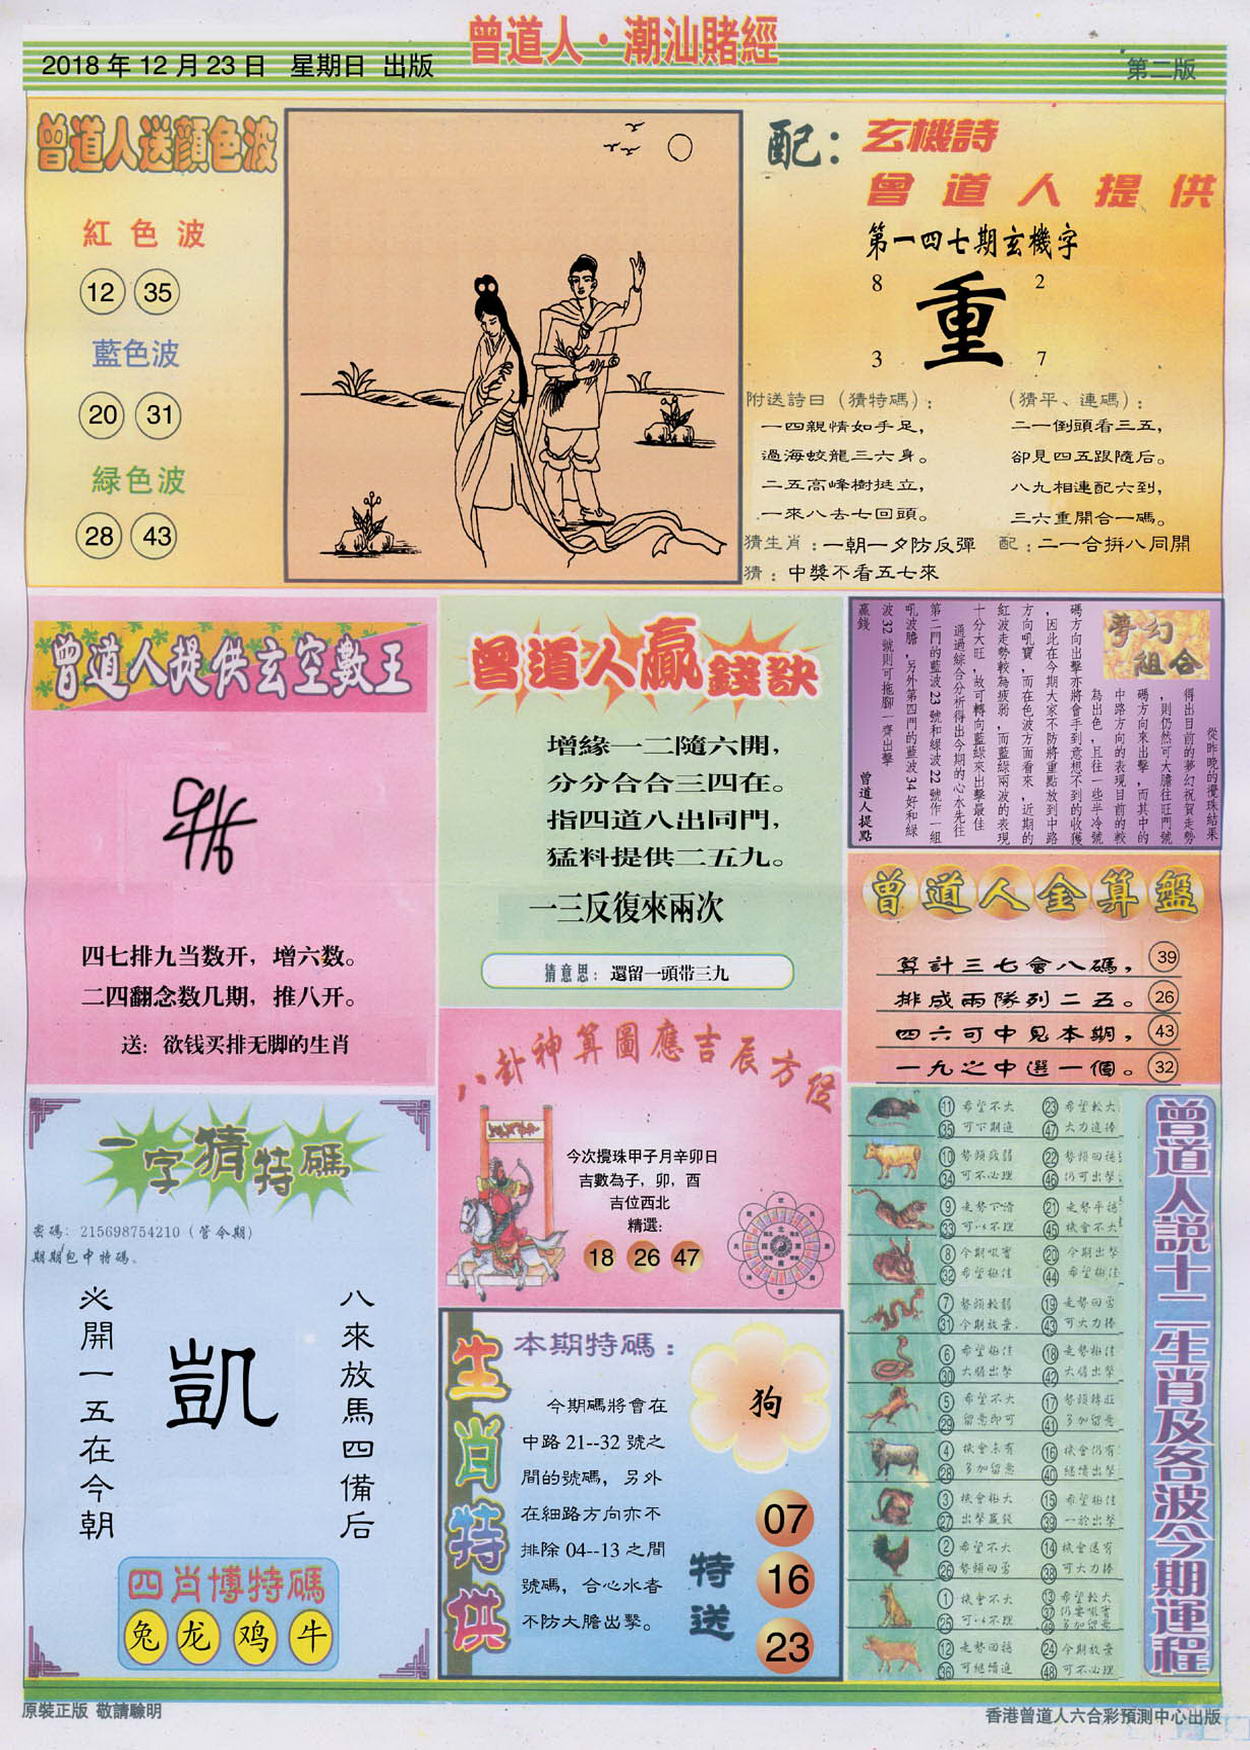 曾道人·潮汕賭經
2018年12月23日 星期日 出版
第二版
曾道人送顏色波
紅色波
12 35
藍色波
20 31
緑色波
28 43
配：玄機詩
曾道人提供
第一四七期玄機字
8 2
重
3 7
附送詩曰（猜特碼）：
一四親情如手足，
過海蛟龍三六身。
二五高峰樹挺立，
一來八去七回頭。
（猜平、連碼）：
二一倒頭看三五，
卻見四五跟隨后。
八九相連配六到，
三六重開合一碼。
猜生肖：一朝一夕防反彈 配：二一合拼八同開
猜：中獎不看五七來
曾道人提供玄空數王
四七排九当数开，增六数。
二四翻念数几期，推八开。
送：欲钱买排无脚的生肖
曾道人贏錢訣
增緣一二隨六開，
分分合合三四在。
指四道八出同門，
猛料提供二五九。
一三反復來兩次
猜意思：還留一頭带三九
夢幻組合
從昨晚的攪珠結果
得出目前的夢幻祝賀走勢
，則仍然可大膽往旺門號
碼方向來出擊，而其中的
中路方向的表現目前的較
為出色，且往一些半冷號
碼方向出擊亦將會手到意想不到的收獲
，因此在今期大家不防將重點放到中路
方向吼寶，而在色波方面看來，近期的
紅波走勢較為疲弱，而藍緑兩波的表現
十分大旺，故可轉向藍緑來出擊最佳
通過綜合分析得出今期的心水先往
第二門的藍波23號和緑波22號作一組
吼波膽，另外第四門的藍波34好和緑
波32號則可拖腳一齊出擊
贏錢
曾道人提點
曾道人金算盤
算計三七會八碼，39
排成兩隊列二五。26
四六可中見本期，43
一九之中選一個。32
八卦神算圖應吉辰方位
今次攪珠甲子月辛卯日
吉數為子，卯，酉
吉位西北
精選：
18 26 47
一字猜特碼
密碼：215698754210（管令期）
期期包中特碼。
八來放馬四備后
凱
來開一五在今朝
四肖博特碼
兔 龙 鸡 牛
生肖特供
本期特碼：
狗
今期碼將會在
中路21--32號之
間的號碼，另外
在細路方向亦不
排除04--13之間
號碼，合心水者
不防大膽出擊。
特送
07
16
23
曾道人説十二生肖及各波今期運程
11 希望不大 23 希望較大
35 可下期追 47 大力追捧
10 勢頭疲弱 22 勢頭回穩
34 可不必理 46 仍可出擊
9 走勢下滑 21 走勢平穩
33 可以不理 45 機會不大
8 今期吼實 20 今期出擊
32 希望極佳 44 希望極佳
7 勢頭較弱 19 走勢回雲
31 今期放棄 43 可大力捧
6 希望極佳 18 走勢極佳
30 大膽出擊 42 大膽出擊
5 希望不大 17 勢頭轉旺
29 留意即可 41 多加留意
4 機會未有 16 機會仍有
28 多加留意 40 繼續出擊
3 機會極大 15 希望極佳
27 出擊贏錢 39 一於出擊
2 希望不大 14 機會還有
26 勢頭回雲 38 可大力捧
1 機會不大 13 希望較大
25 可以不理 37 仍要吼實
49 多加留意
12 走勢回穩 24 今期放棄
36 可繼續追 48 可不必理
原裝正版 敬請驗明
香港曾道人六合彩預測中心出版